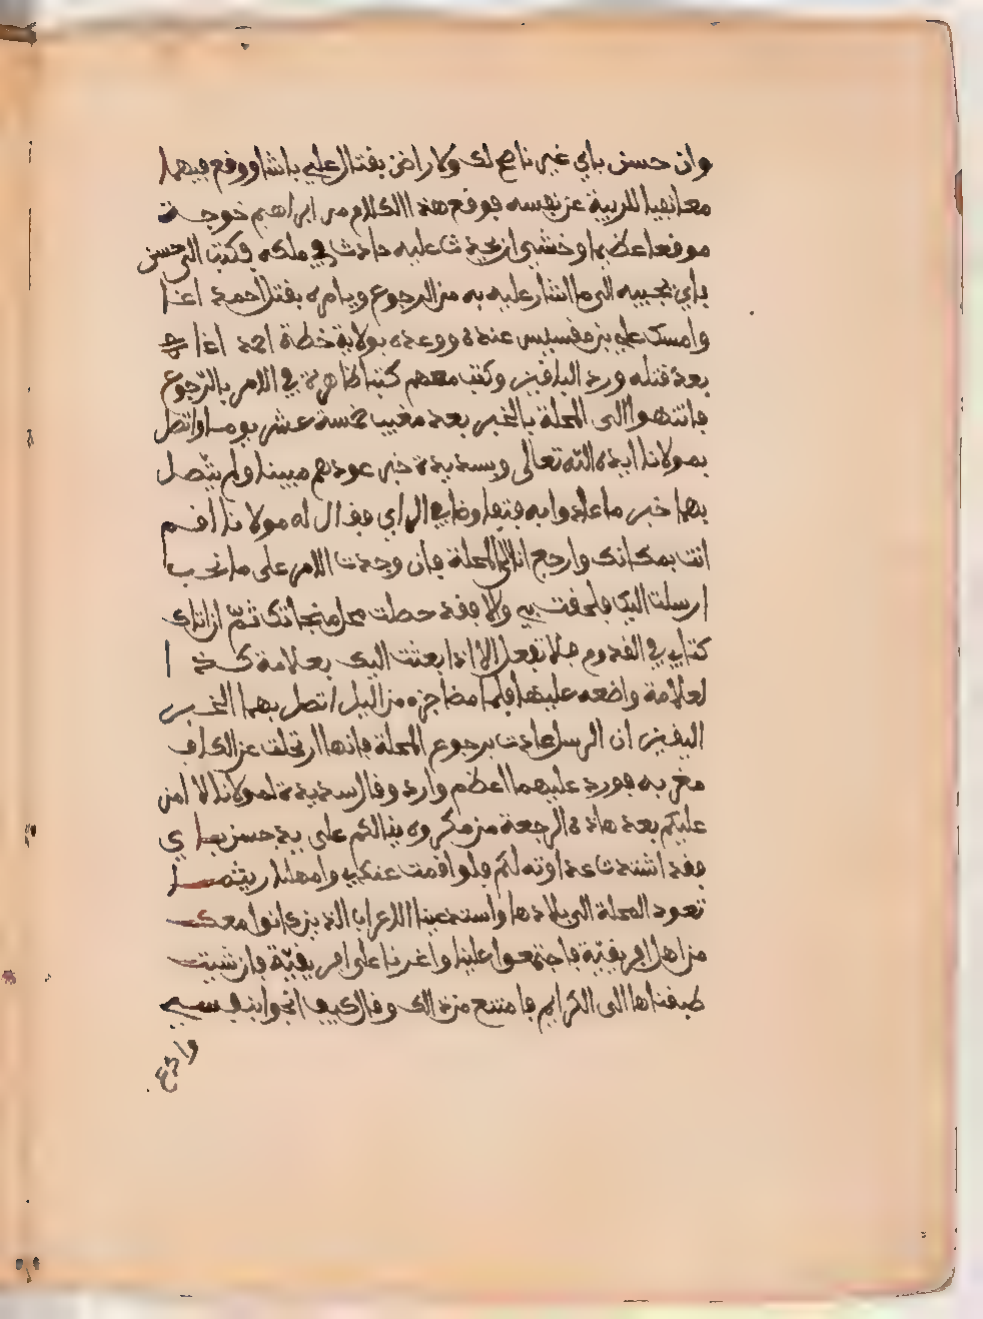 وان حسن باي غير ناصح لك ولا راض بقتال علي باشا ووقع فيهما
معا نفيا للريبة عن نفسه فوقع هذا الكلام من ابراهيم خوجة
موقعا عظيما وخشي ان يحدث عليه حادث في ملكه فكتب الى حسن
باي يجيبه الى ما اشار عليه به من الرجوع ويامره بقتل احمد اغا
وامسك علي بن مفسيس عنده ووعده بولاية خطة احمد اغا
بعد قتله ورد الباقين وكتب معهم كتبا ظاهرة في الامر بالرجوع
فانتهوا الى المحلة بالخبر بعد مغيب خمسة عشر يوما واتصل
بمولانا ايده الله تعالى وبسديدة خبر عودهم مبينا ولم يتصل
بهما خبر ما عادوا به فتفاوضا في الراي فقال له مولانا اقم
انت بمكانك وارجع انا الى المحلة فان وجدت الامر على ما نحب
ارسلت اليك فلحقت بي والا فقد حصلت محل منجاتك ثم ان اتاك
كتابي في القدوم فلا تفعل الا اذا بعثت اليك بعلامة كذا
لعلامة واضعه عليها فلما مضا جزء من اليل اتصل بهما الخبر
اليقين ان الرسل عادت برجوع المحلة فانها ارتحلت عن الكاف
مغربه فورد عليهما اعظم وارد وقال سديدة لمولانا لا امن
عليكم بعد هاذه الرجعة من مكروه ينالكم على يد حسن باي
فقد اشتدت عداوته لكم فلو اقمت عندي وامهلنا ريثما
تعود المحلة الى بلادها واستدعينا الاعراب الذين كانوا معك
من اهل افريقية فاجتمعوا علينا واغرنا على افريقية فان شيت
طبقناها الى الكرايم فامتنع من ذالك وقال كيف انجوا بنفسي
وادع